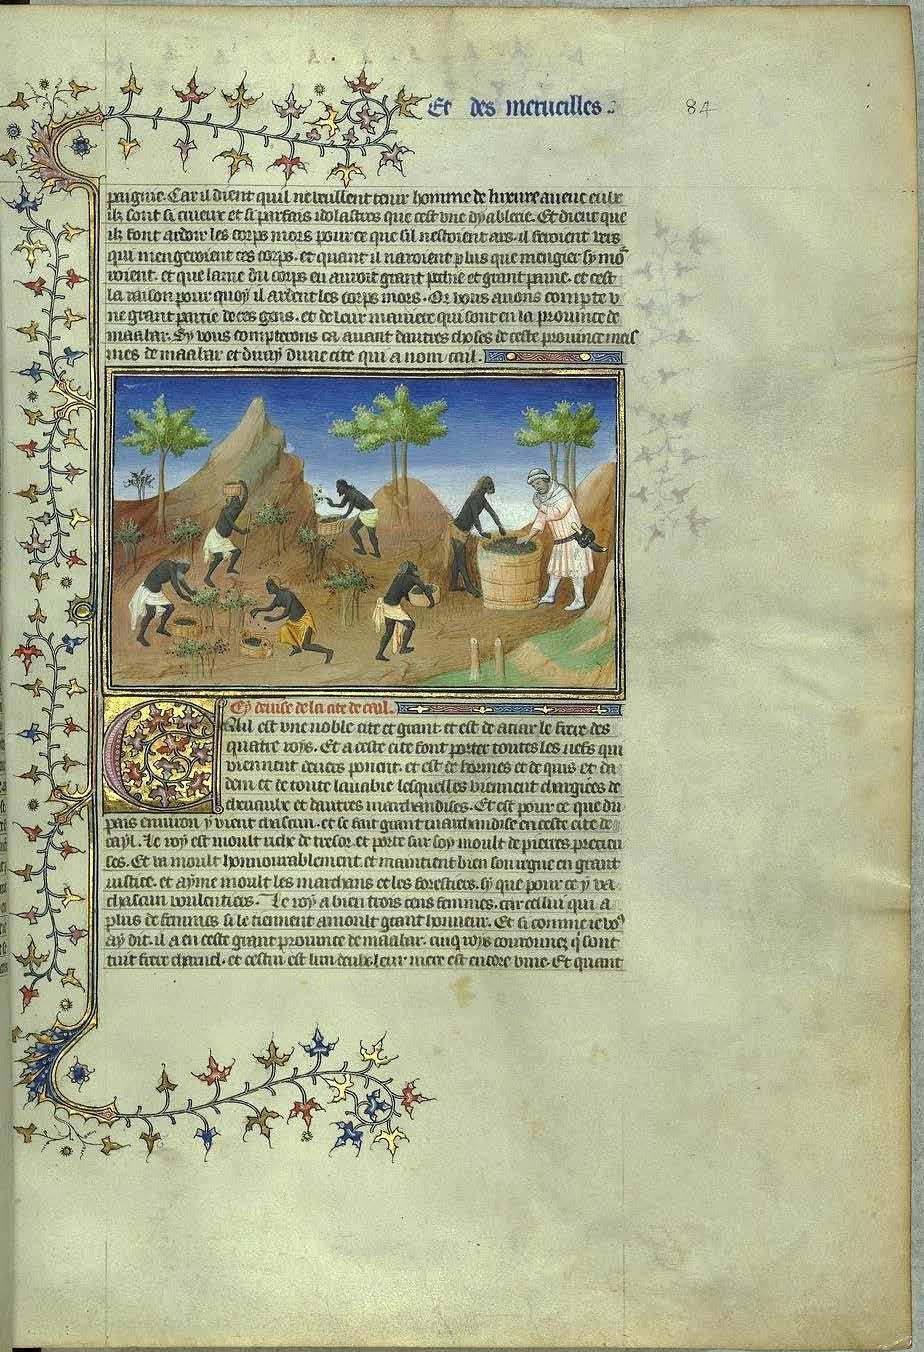 Et des merueilles.
84
paignie. Car il dient quil ne veullent tenir homme de luxure auenc eulx
ilz sont si crueux et si parfais ydolastres que cest vne dyablerie. Et dient que
ilz font ardoir les corps mors pour ce que sil nestoient ars. il feroient vers
qui mengeroient ces corps. et quant il naroient plus que mengier sy mo
roient. et que lame du corps en auroit grant pechie et grant paine. et cest
la raison pour quoy il ardent les corps mors. Or vous auons compte v
ne grant partie de ces gens. et de leur maniere qui sont en la prouince de
maabar. Sy vous compterons ca auant dautres choses de ceste prouince meis
mes de maabar et diray dune cite qui a nom cail.
Cy deuise de la cite de cail.
Cail est vne noble cite et grant. et est de aciar le frere des
quatre roys. Et a ceste cite font porter toutes les nefs qui
viennent deuers ponent. et est de hormes et de quis et da
dem et de toute larrabie lesquelles viennent chargiees de
cheuaulx et dautres marchandises. Et est pour ce que du
pais enuiron y vient chascun. et se fait grant marchandise en ceste cite de
cayl. Le roy est moult riche de tresor. et porte sur soy moult de pierres precieu
ses. Et va moult honnourablement. et maintient bien son regne en grant
iustice. et ayme moult les marchans et les forestiers. sy que pour ce y va
chascun voulentiers. Le roy a bien trois cens femmes. car cellui qui a
plus de femmes si le tiennent a moult grant honneur. Et si comme ie vo9
ay dit. il a en ceste grant prouince de maabar. cinq roys couronnez q sont
tuit frere charnel. et cestui est lun deulx. leur mere est encore viue. Et quant